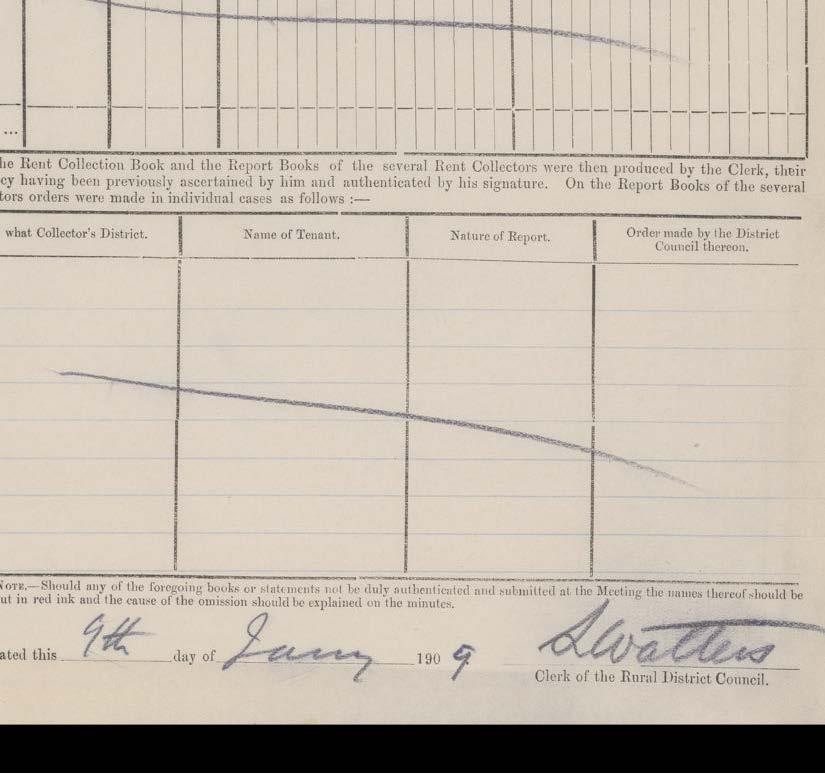 ...
he Rent Collection Book and the Report Books of the several Rent Collectors were then produced by the Clerk, their
cy having been previously ascertained by him and authenticated by his signature. On the Report Books of the several
tors orders were made in individual cases as follows :—
what Collector's District. Name of Tenant. Nature of Report. Order made by the District
Council thereon.
NOTE.—Should any of the foregoing books or statements not be duly authenticated and submitted at the Meeting the names thereof should be
ut in red ink and the cause of the omission should be explained on the minutes.
ated this 9th day of Jany 1909
Clerk of the Rural District Council.